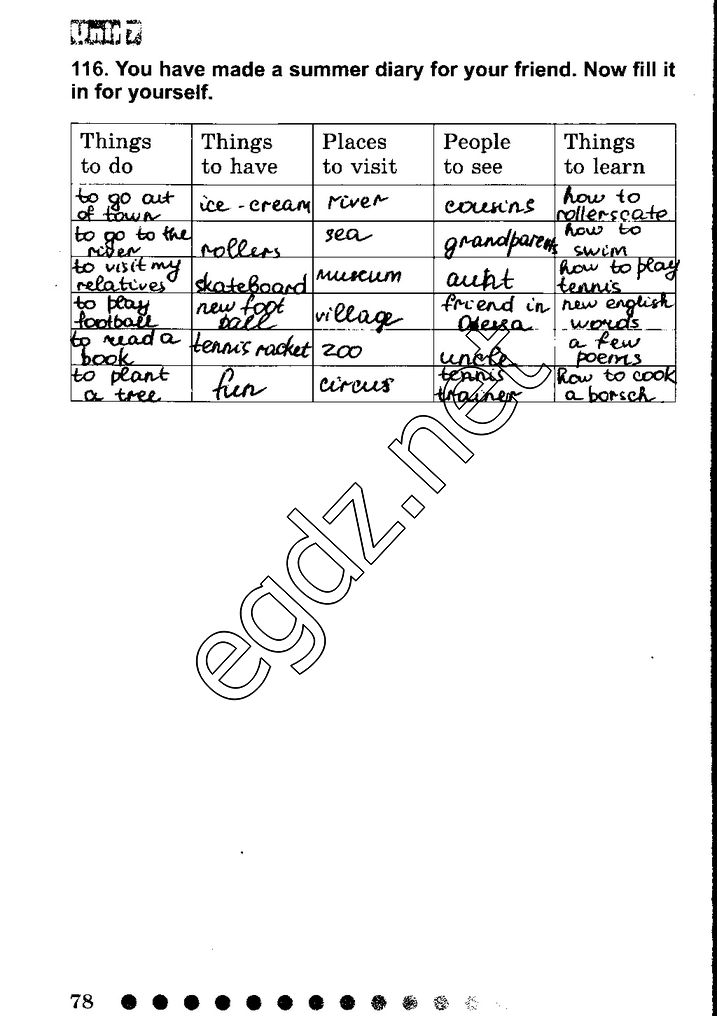 Unit 7
116. You have made a summer diary for your friend. Now fill it
in for yourself.
Things to do | Things to have | Places to visit | People to see | Things to learn
to go out of town | ice-cream | river | cousins | how to rollerscate
to go to the river | rollers | sea | grandparents | how to swim
to visit my relatives | skateboard | museum | aunt | how to play tennis
to play football | new foot ball | village | friend in Odessa | new english words
to read a book | tennis racket | zoo | uncle | a few poems
to plant a tree | fun | circus | tennis trainer | how to cook a borsch
egdz.net
78